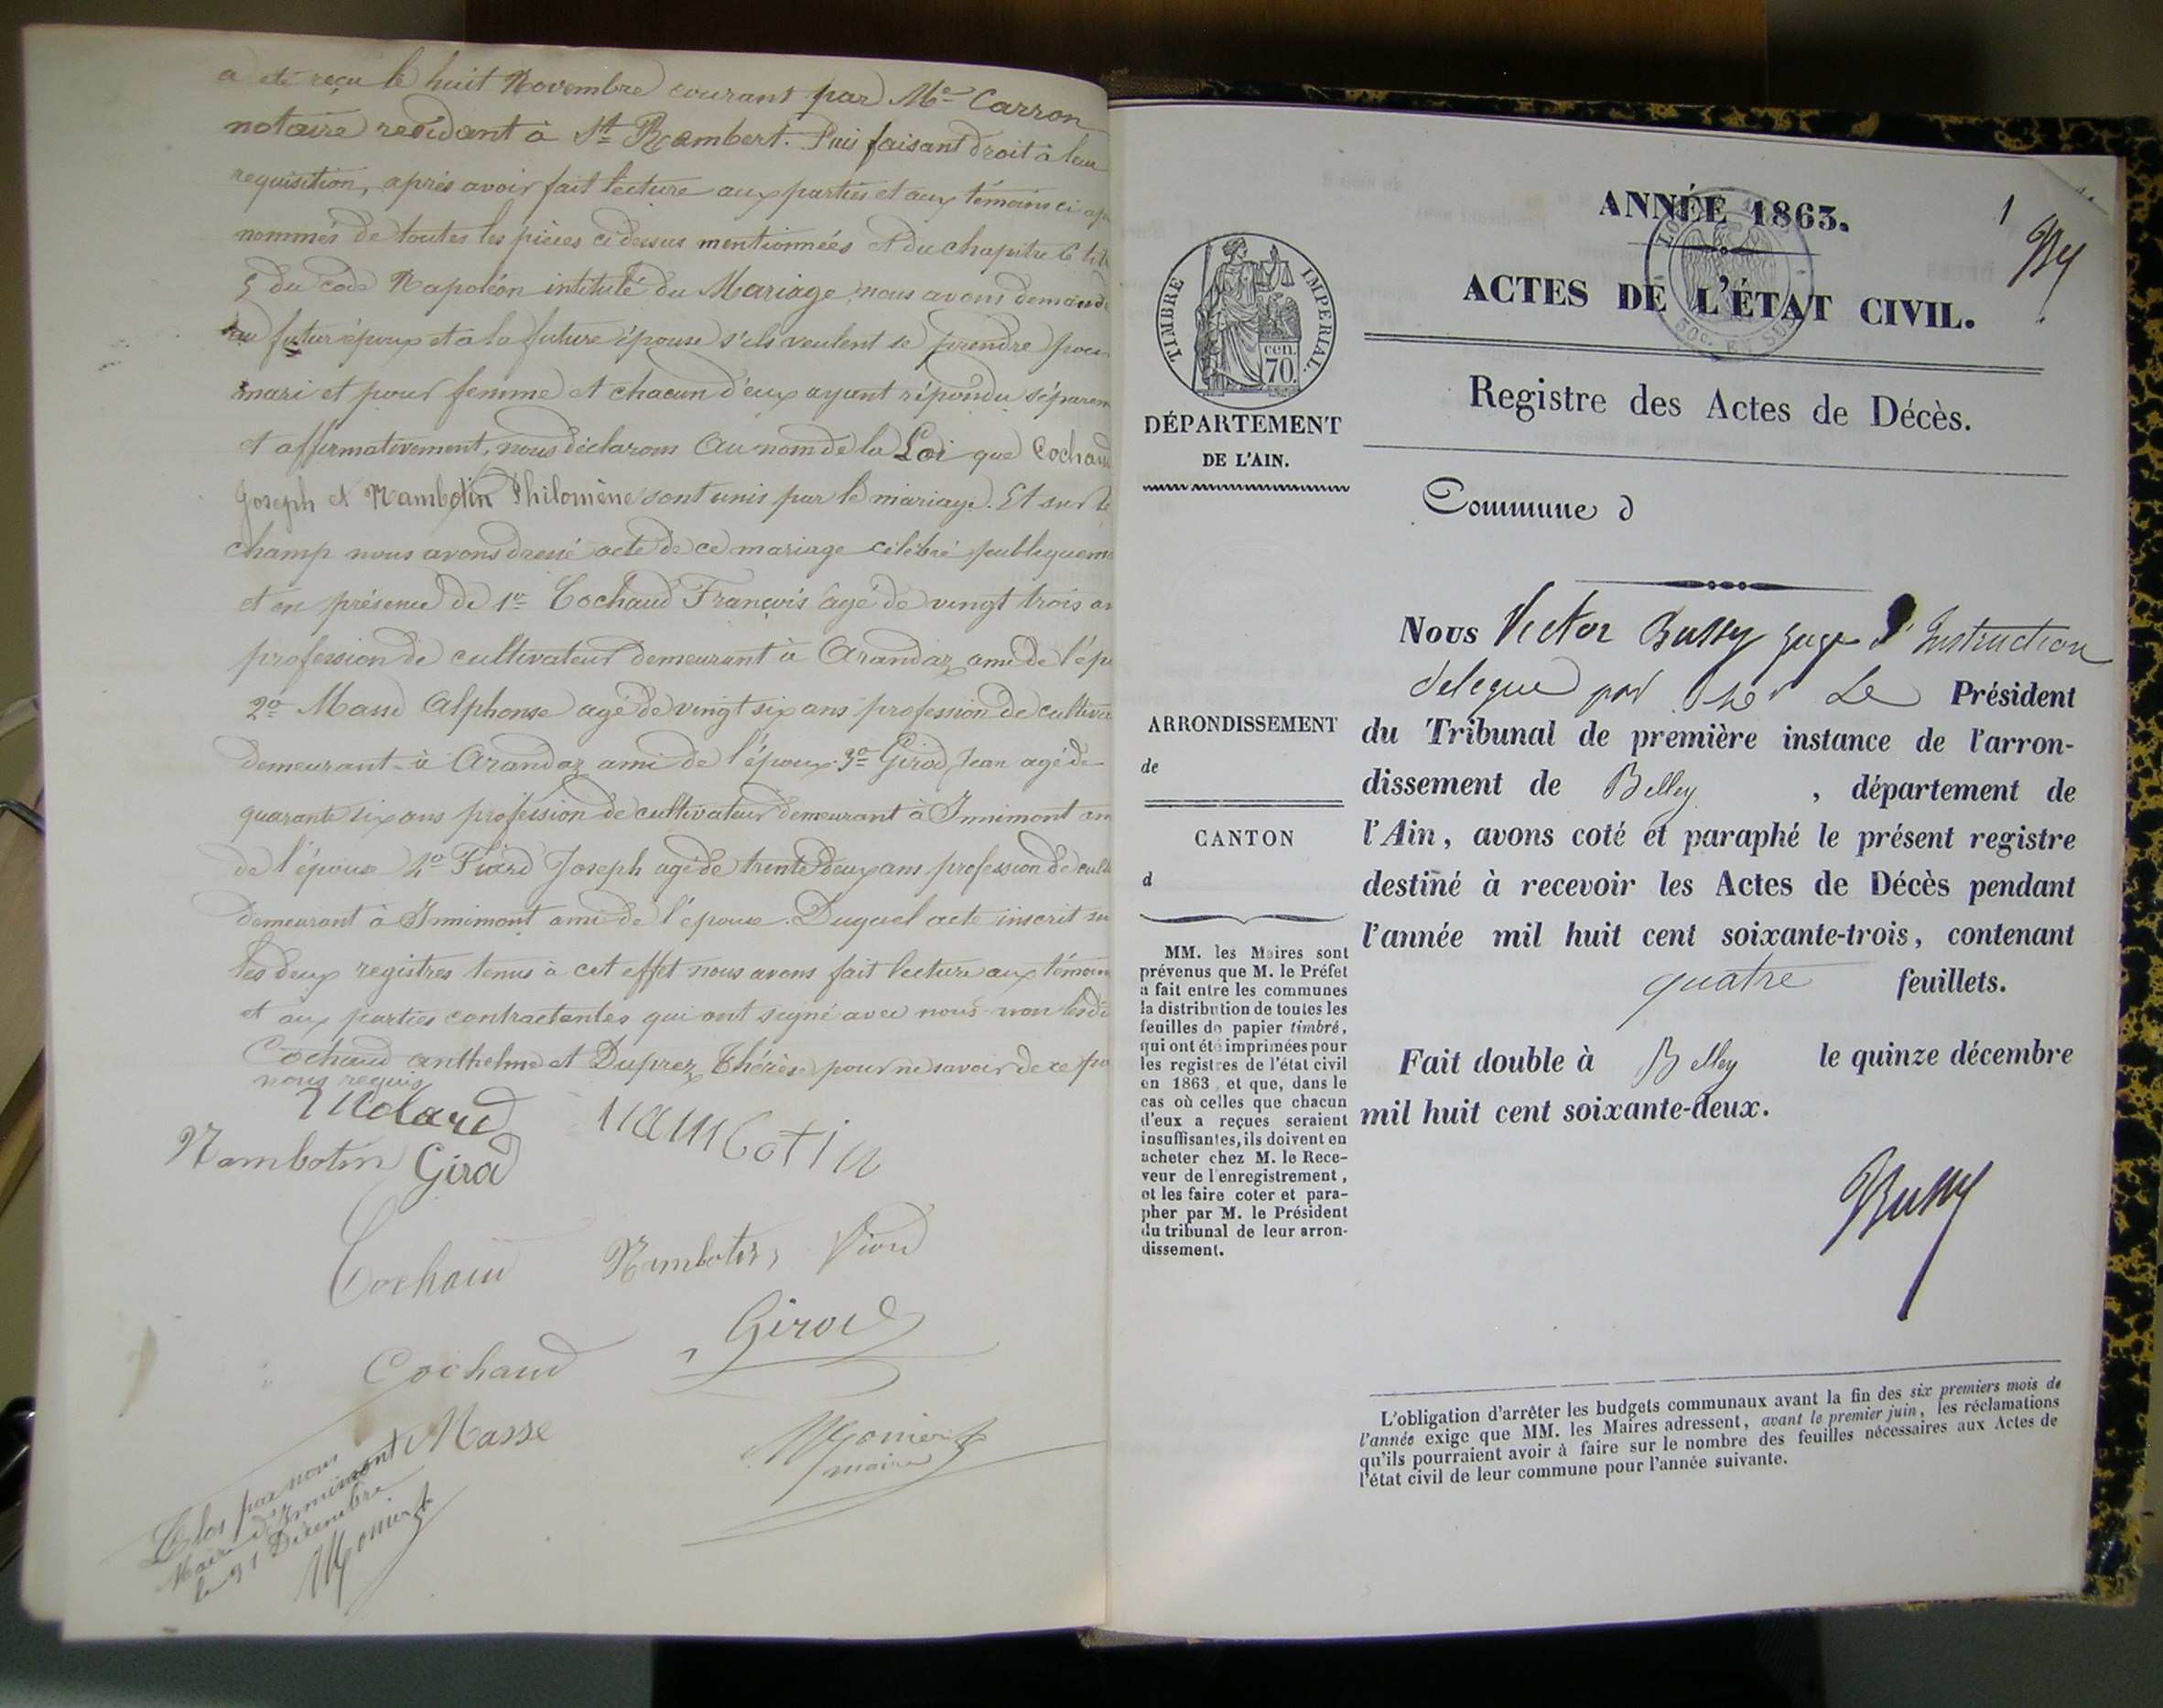 a été reçu le huit Novembre courant par Me Carron
notaire residant à St Rambert. Puis faisant droit à leur
requisition, après avoir fait lecture aux parties et aux témoins ci ap
nommés de toutes les pièces ci dessus mentionnées et du chapitre 6 tit
5 du code Napoléon intitulé du Mariage, nous avons demandé
au futur époux et à la future épouse s'ils veulent se prendre pour
mari et pour femme et chacun d'eux ayant répondu séparem
et affirmativement, nous déclarons au nom de la Loi que Cochaud
Joseph et Nambotin Philomène sont unis par le mariage. Et sur le
champ nous avons dressé acte de ce mariage célébré publiqueme
et en présence de 1er Cochaud François âgé de vingt trois an
profession de cultivateur demeurant à Arandaz ami de l'ép
2o Alphonse agé de vingt six ans profession de cultiva
demeurant à Arandaz ami de l'époux 3o Girod Jean agé de
quarante six ans profession de cultivateur demeurant à Innimont am
de l'épouse 4o Joseph agé de trente deux ans profession de cult
demeurant à Innimont ami de l'épouse. Duquel acte inscrit su
les deux registres tenus à cet effet nous avons fait lecture aux témoin
et aux parties contractantes qui ont signé avec nous non les
Cochaud anthelme et Duprez Thérèse pour ne savoir de ce
nous requis
Nambotin
Nambotin Girod
Cochaud Nambotin
Girod
Cochaud
Masse
Monier
maire
Clos par nous
Maire d'Innimont
le 31 Décembre
Monier
ANNÉE 1863.
1
By
ACTES DE L'ÉTAT CIVIL.
50c. EN SUS
TIMBRE IMPÉRIAL.
cen.
70.
Registre des Actes de Décès.
DÉPARTEMENT
DE L'AIN.
Commune d
Nous Victor Bussy juge d'Instruction
delegué par Le Président
du Tribunal de première instance de l'arron-
dissement de Belley , département de
l'Ain, avons coté et paraphé le présent registre
destiné à recevoir les Actes de Décès pendant
l'année mil huit cent soixante-trois, contenant
quatre feuillets.
Fait double à Belley le quinze décembre
mil huit cent soixante-deux.
Bussy
ARRONDISSEMENT
de
CANTON
d
MM. les Maires sont
prévenus que M. le Préfet
a fait entre les communes
la distribution de toutes les
feuilles de papier timbré,
qui ont été imprimées pour
les registres de l'état civil
en 1863, et que, dans le
cas où celles que chacun
d'eux a reçues seraient
insuffisantes, ils doivent en
acheter chez M. le Rece-
veur de l'enregistrement,
et les faire coter et para-
pher par M. le Président
du tribunal de leur arron-
dissement.
L'obligation d'arrêter les budgets communaux avant la fin des six premiers mois de
l'année exige que MM. les Maires adressent, avant le premier juin, les réclamations
qu'ils pourraient avoir à faire sur le nombre des feuilles nécessaires aux Actes de
l'état civil de leur commune pour l'année suivante.